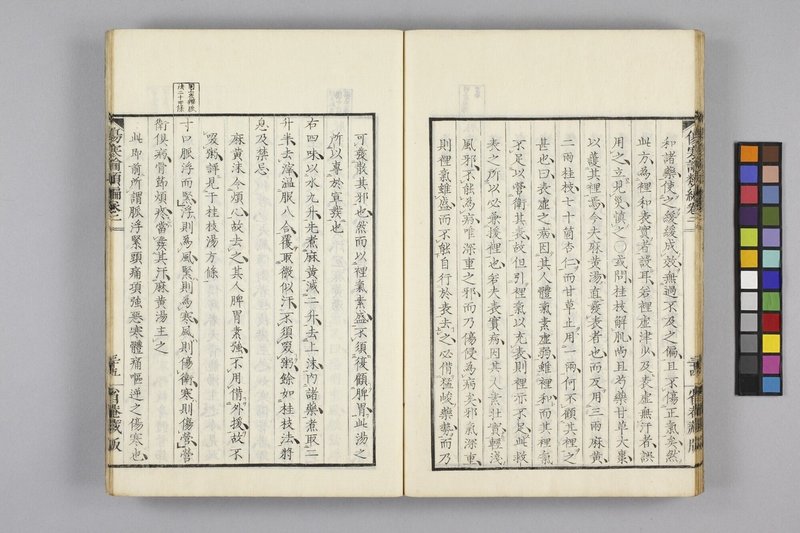 和諸藥使之緩緩成效無過不及之偏且不傷正氣矣然
此方為裡和表實者設耳若裡虛津少及表虛無汗者誤
用之立見災慎之〇或問桂枝解肌而且芍藥甘草大棗
以護其裡焉今夫麻黃湯直發表者也而反用三兩麻黃
二兩桂枝七十箇杏仁而甘草止用一兩何不顧其裡之
甚也曰表虛之病因其人體氣素虛弱雖裡和而其裡氣
不足以營衛其表故但引裡氣以充表則裡亦不足此救
表之所以必兼援裡也若夫表實病因其人素壯實輕淺
風邪不能為病唯深重之邪而乃傷侵為病矣邪氣深重
則裡氣雖盛而不能自行於表去之必借猛峻藥勢而乃
可發散其邪也然而以裡氣素盛不須復顧脾胃此湯之
所以專於單發也
右四味以水九升先煮麻黃減二升去上沫內諸藥煮取二
升半去滓溫服八合覆取微似汗不須啜粥餘如桂枝法將
息及禁忌
麻黃沫令煩心故去之其人脾胃素強不用借外援故不
啜粥詳見于桂枝湯方條
寸口脈浮而緊浮則為風緊則為寒風則傷衛寒則傷營營
衛俱病骨節煩疼當發其汗麻黃湯主之
此即前所謂脈浮緊頭痛項強惡寒體痛嘔逆之傷寒也